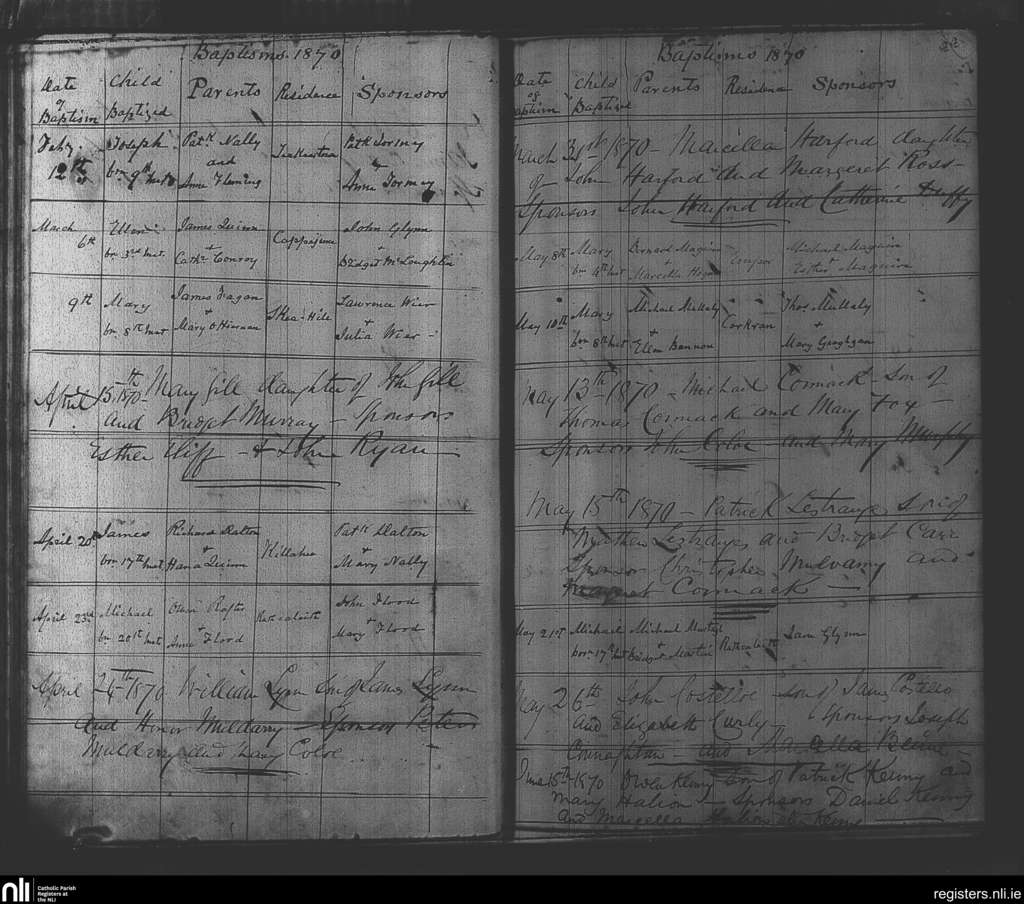 Baptisms 1870
Date of Baptism Child Baptized Parents Residence Sponsors
Feby. 12th Joseph born 9th inst Patk Nally and Anne Fleming Patk Tormey + Anne Tormey
March 6th Ellen born 3rd inst. James Quinn + Cathe Conroy John Glynn + Bridget McLoughlin
9th Mary born 8th inst James Fagan + Mary O Hiernan Skea-Hill Lawrence Wier + Julia Wier
April 15th 1870 Mary Gill daughter of John Gill
and Bridget Murray – Sponsors
Esther Cliff – + John Ryan
April 20th James born 17th inst Richard Dalton + Hana Quinn Killahee Patk Dalton + Mary Nally
April 23rd Michael bn 20th inst Owen Rafter + Anne Flood Rathcalrith John Flood + Mary Flood
April 24th 1870 William Lynn son of James Lynn
and Honor Muldary – Sponsors Peter
Muldary and Mary Coloe
Baptisms 1870
Date of Baptism Child Baptized Parents Residence Sponsors
March 31st 1870 – Marcella Harford daughter
of John Harford and Margaret Ross –
Sponsors John Harford and Catherine Duffy
May 8th Mary bn 4th inst Bernard Maguire + Marcella Michael Maguire + Esther Maguire
May 10th Mary born 8th inst Michael Mullaly + Ellen Bannon Corkran Thos. Mullaly + Mary Geoghgan
May 13th 1870 – Michael Cormack – son of
Thomas Cormack and Mary Foy –
Sponsors John Coloe – and Mary Murphy
May 15th 1870 – Patrick Lestrange son of
Matthew Lestrange and Bridget Carr
Sponsors Christopher Mulvanny and
Margaret Cormack –
May 21st Michael born 17th inst Michael + Bridget Martin Rathcalrith Glynn
May 26th John Costelloe – son of James Costello
and Elizabeth Curly – Sponsors Joseph
Connaghton – and Marcella
June 15th 1870 Owen Kenny son of Patrick Kenny and
Mary – Sponsors Daniel Kenny
and Marcella
nli
Catholic Parish
Registers at
the NLI
registers.nli.ie